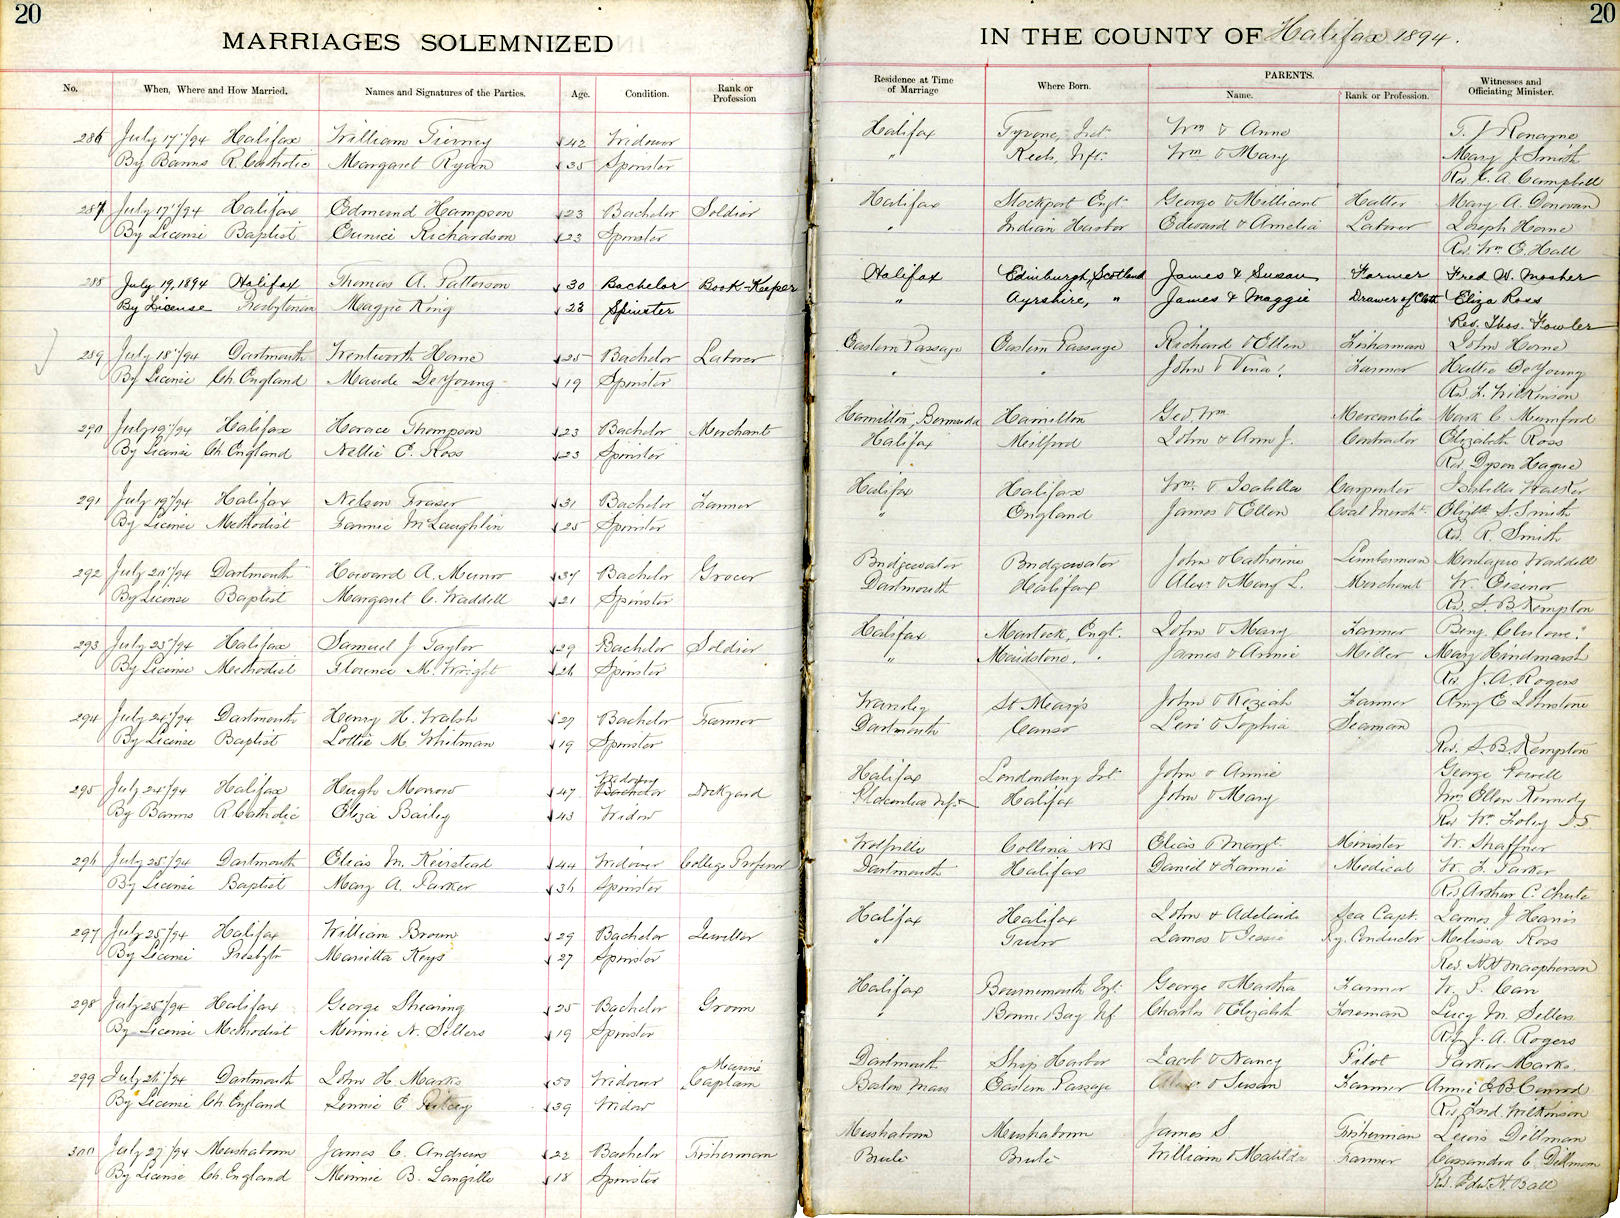 20
MARRIAGES SOLEMNIZED
No. When, Where and How Married. Names and Signatures of the Parties. Age. Condition. Rank or Profession
286 July 17"/94 Halifax William Tierney 42 Widower
By Banns R. Catholic Margaret Ryan 35 Spinster
287 July 17"/94 Halifax Edmund Hampson 23 Bachelor Soldier
By License Baptist Eunice Richardson 23 Spinster
288 July 19, 1894 Halifax Thomas A. Patterson 30 Bachelor Book-Keeper
By License Presbyterian Maggie King 23 Spinster
289 July 18"/94 Dartmouth Wentworth Horne 25 Bachelor Laborer
By License Ch. England Maude DeYoung 19 Spinster
290 July 19"/94 Halifax Horace Thompson 23 Bachelor Merchant
By License Ch England Nellie E. Ross 23 Spinster
291 July 19"/94 Halifax Nelson Fraser 31 Bachelor Farmer
By License Methodist Fannie McLaughlin 25 Spinster
292 July 20"/94 Dartmouth Howard A. Munro 37 Bachelor Grocer
By License Baptist Margaret C. Waddell 21 Spinster
293 July 23"/94 Halifax Samuel J Taylor 29 Bachelor Soldier
By License Methodist Florence M. Wright 26 Spinster
294 July 24"/94 Dartmouth Henry H. Walsh 27 Bachelor Farmer
By License Baptist Lottie M. Whitman 19 Spinster
Widower
295 July 24"/94 Halifax Hugh Morrow 47 Bachelor Dockyard
By Banns R Catholic Eliza Bailey 43 Widow
296 July 25"/94 Dartmouth Elias M. Keirstead 44 Widower College Professor
By License Baptist Mary A. Parker 36 Spinster
297 July 25"/94 Halifax William Brown 29 Bachelor Jeweller
By License Presbytr Marietta Keys 27 Spinster
298 July 25"/94 Halifax George Shearing 25 Bachelor Groom
By License Methodist Minnie N. Sellers 19 Spinster
299 July 26"/94 Dartmouth John H. Marks 50 Widower Marine Captain
By License Ch. England Jennie E 39 Widow
300 July 27/94 Mushaboom James C. Andrew 22 Bachelor Fisherman
By License Ch. England Minnie B. Langille 18 Spinster
20
IN THE COUNTY OF Halifax 1894.
Residence at Time of Marriage Where Born. PARENTS. Name. Rank or Profession. Witnesses and Officiating Minister.
Halifax Tyrone, Irel. Wm & Anne T. J Ronayne
" Nfl. Wm & Mary Mary J Smith
Rev. E. A. Campbell
Halifax Stockport Engl. George & Millicent Hatter Mary A. Donovan
" Indian Harbor Edward & Amelia Laborer Joseph Horne
Rev. Wm E. Hall
Halifax Edinburgh, Scotland James & Susan Farmer Fred W. Mosher
" Ayrshire, " James & Maggie Drawer of Cloth Eliza Ross
Rev. Thos. Fowler
Eastern Passage Eastern Passage Richard & Ellen Fisherman John Horne
" " John & Vina Farmer Hattie DeYoung
Rev. F. Wilkinson
Hamilton, Bermuda Hamilton Geo Wm. Mercantile Mark C. Mumford
Halifax Milford John & Ann J. Contractor Elizabeth Ross
Rev. Dyson Hague
Halifax Halifax Wm. & Isabella Carpenter Isabella Walker
" England James & Ellen Coal Mercht. Elizbth S. Smith
Rev. R. Smith
Bridgewater Bridgewater John & Catherine Lumberman Montague Waddell
Dartmouth Halifax Alexr & Mary L. Merchant W. Eisenor
Rev. S. B Kempton
Halifax Martock, Engl. John & Mary Farmer Benj.
" Maidstone, " James & Annie Miller Mary Hindmarsh
Rev J. A. Rogers
St Mary's John & Keziah Farmer Amy E Johnstone
Dartmouth Canso Levi & Sophia Seaman
Rev. S. B. Kempton
Halifax Londonderry Irl. John & Annie George Powell
Placentia Nfl. Halifax John & Mary Mrs Ellen Kennedy
Rev Wm Foley
Wolfville Collina NB Elias & Margt. Minister W. Shaffner
Dartmouth Halifax Daniel & Fannie Medical W. F. Parker
Rev Arthur C. Chute
Halifax Halifax John & Adelaide Sea Capt. James J Harris
" Truro James & Jessie Ry. Conductor Melissa Ross
Rev. N H Macpherson
Halifax Bournemouth Engl. George & Martha Farmer W. P. Carr
" Bonne Bay Nf Charles & Elizabeth Foreman Lucy M. Sellers
Rev J. A. Rogers
Dartmouth Ship Harbor Jacob & Nancy Pilot Parker Marks
Boston, Mass Eastern Passage & Susan Farmer Annie & B Conrod
Rev Fred. Wilkinson
Mushaboom Mushaboom James S Fisherman Lewis Dillman
Brulé Brulé William & Matilda Farmer Cassandra C. Dillman
Rev. Edw. H. Ball